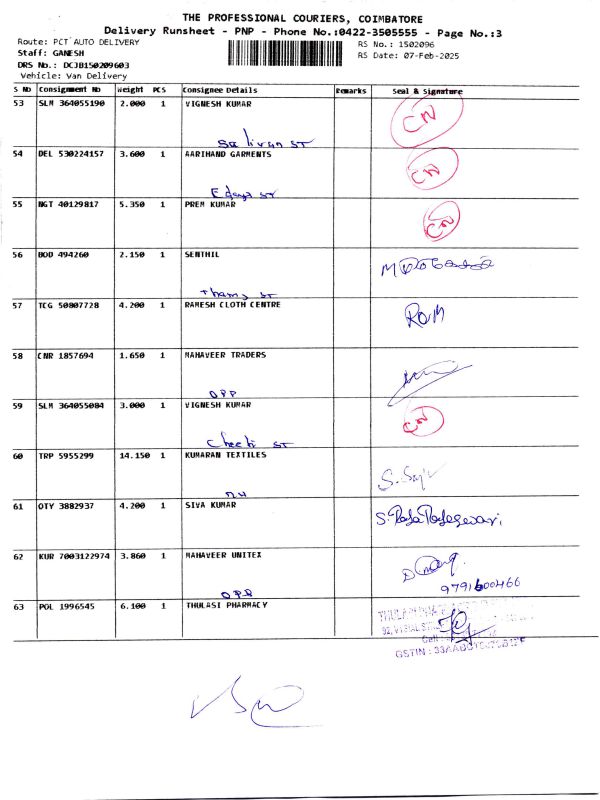 THE PROFESSIONAL COURIERS, COIMBATORE
Delivery Runsheet - PNP - Phone No.:0422-3505555 - Page No.:3
Route: PCT AUTO DELIVERY
RS No.: 1502096
Staff: GANESH
RS Date: 07-Feb-2025
DRS No.: DCJB150209603
Vehicle: Van Delivery
S No Consignment No Weight PCS Consignee Details Remarks Seal & Signature
53 SLM 364055190 2.000 1 VIGNESH KUMAR CN
ST
54 DEL 530224157 3.600 1 AARIHAND GARMENTS CN
ST
55 NGT 40129817 5.350 1 PREM KUMAR CN
56 BOD 494260 2.150 1 SENTHIL
ST
57 TCG 50807728 4.200 1 RAMESH CLOTH CENTRE RAM
58 CNR 1857694 1.650 1 MAHAVEER TRADERS
OPP
59 SLM 364055084 3.000 1 VIGNESH KUMAR CN
ST
60 TRP 5955299 14.150 1 KUMARAN TEXTILES
61 OTY 3882937 4.200 1 SIVA KUMAR S. Raja Rajeswari
62 KUR 7003122974 3.860 1 MAHAVEER UNITEX
OPP
9791600466
63 POL 1996545 6.100 1 THULASI PHARMACY
Cell
GSTIN :